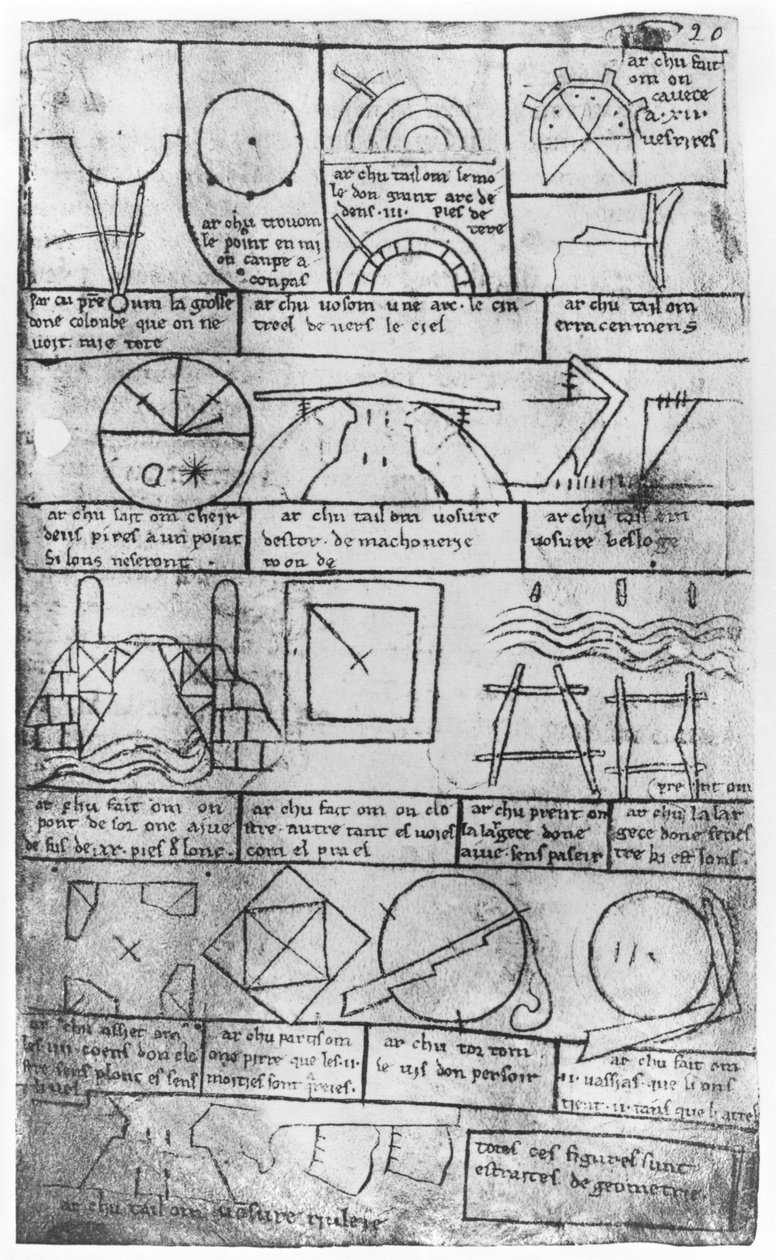 20
ar chu fait
om on
cauece
a · xii ·
uesrires
ar chu trouom
le point en mi
on canpe a
conpas
ar chu tail om le mo
le don grant arc de
dens · iii · pies de
tere
par cu prēs om la grosse
done colonbe que on ne
uoit mie tote
ar chu uosom une arc · le cin
treel de uers le ciel
ar chu tail om
erracenmens
ar chu fait om cheir
deus pires a un point
si lons ne seront ·
ar chu tail om uosure
destor · de machonerie
roonde
ar chu tail om
uosure besloge
ar chu fait om on
pont de sor one aiue
de fus de · xx · pies d lonc ·
ar chu fait om on clo
stre · autre tant es uoies
com el prael
ar chu prent om
la largece done
aiue · sens paseir
pre nt om
ar chu la lar
gece done fenes
tre ki est lons ·
ar chu assiet om
les · iiii · coens don clo
stre sens plonc et sens
liuel
ar chu partis om
one pirre que les · ii ·
moities sont qreies ·
ar chu tor tom
le uis don persoir
ar chu fait om
· ii · uassias · que li ons
tient · ii · tans que li atres
ar chu tail om uosure riulere
totes ces figures sunt
estraites de geometrie ·